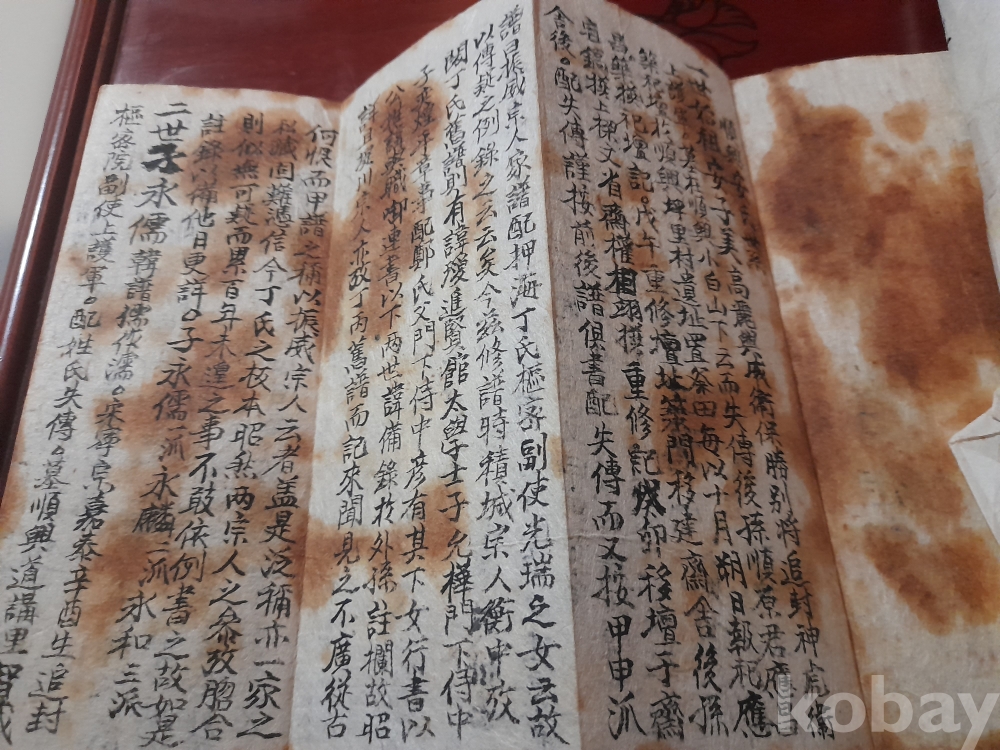 順興安
一世始祖安子美高麗興威衛保勝別將追封神虎衛
上護軍墓在順興小白山下云而失傳後孫順原君應昌
築壇於順興坪里村遺址置祭田每以十月朔日報祀應
昌築撰祀壇記。戊午重修壇址築門移建齋舍後孫
宅鎬撰上樑文省齋權相翊撰重修記癸卯移壇于齋
舍後。配失傳謹按前後譜俱書配失傳而又按甲申派
譜曰振威宗人家譜配押海丁氏樞密副使光瑞之女云故
以傳疑之例錄之云云矣今玆修譜時積城宗人衡中攷
閱丁氏舊譜則有諱瑷進賢館太學士子允樺門下侍中
子平章事配鄭氏父門下侍中彦有其下女行書以
職啣連書以下兩世諱備錄於外孫註欄故昭
詳且川宗人亦攷丁丙舊譜而記來聞見之不廣從古
何恨而甲譜之稱以振威宗人云者盖是泛稱亦一家之
私藏固難憑信今丁氏之校本昭然兩宗人之叅攷脗合
則似無可疑而累百年未遑之事不敢依例書之故如是
註錄以備他日更詳。子永儒一派永麟二派永和三派
二世子永儒韓譜儒作濡。宋寧宗嘉泰辛酉生追封
樞密院副使上護軍。配姓氏失傳。墓順興道講里
kobay